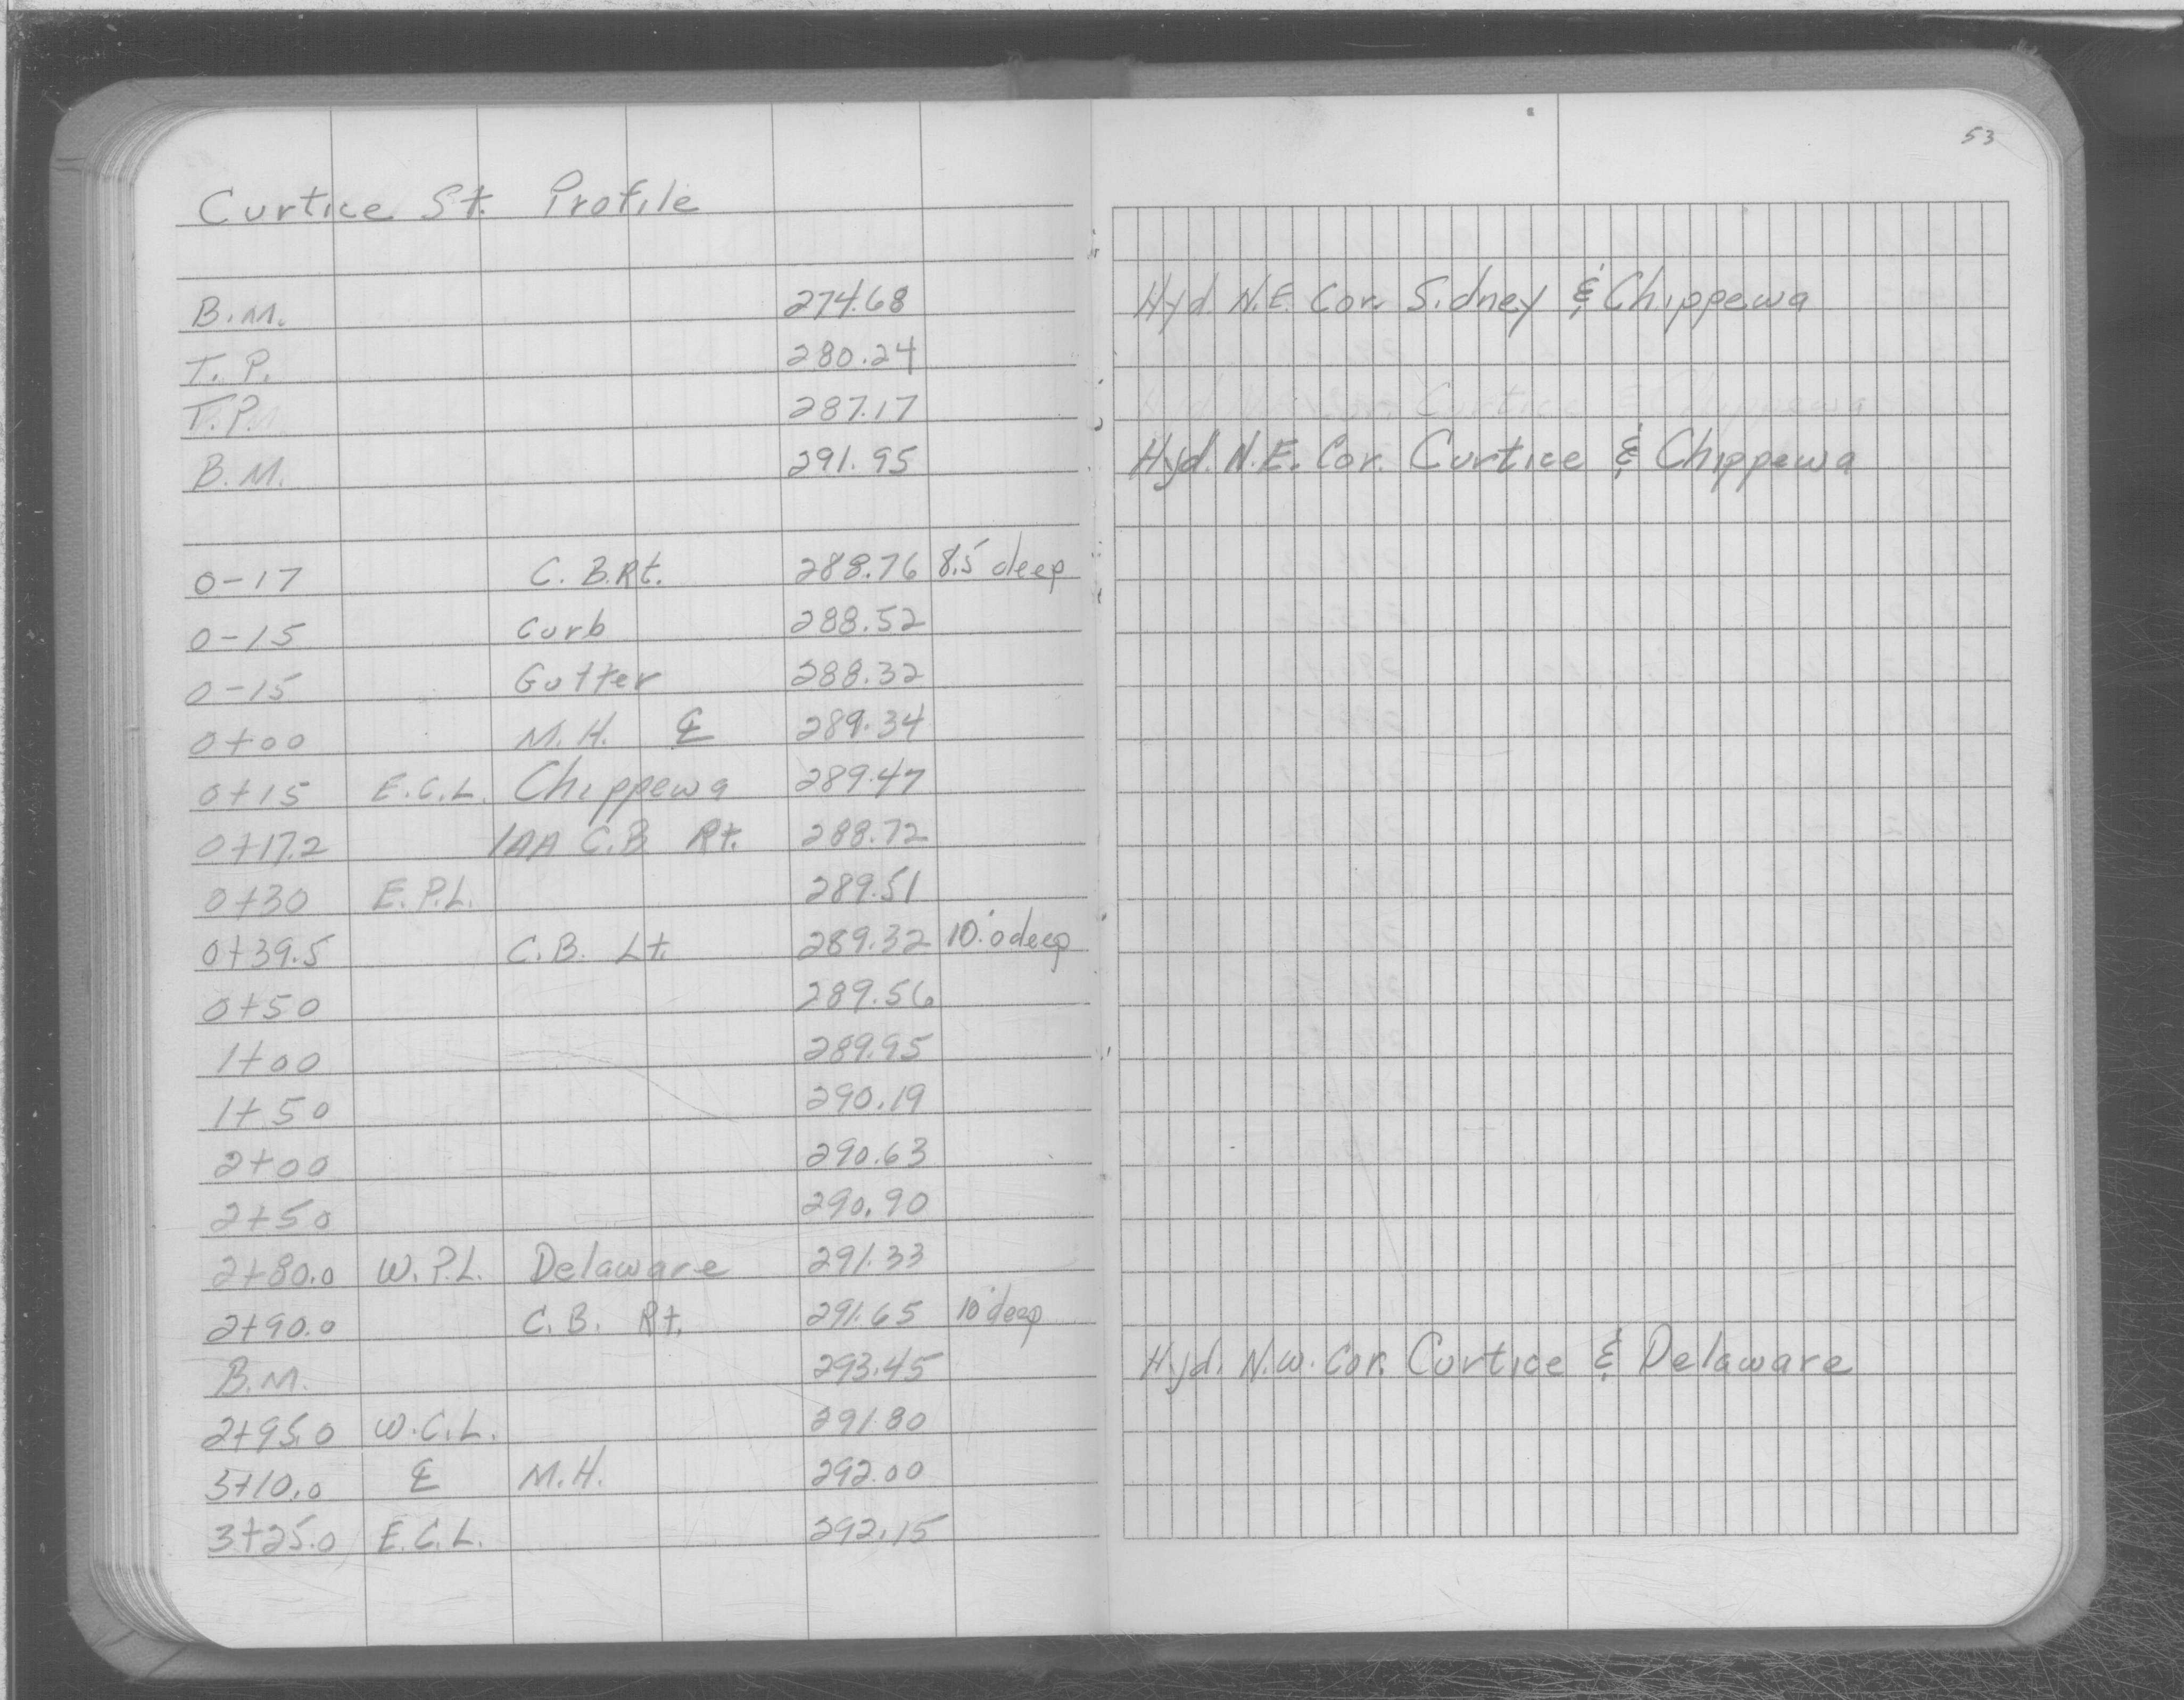 53
Curtice St. Profile
B.M. 274.68 Hyd. N.E. Cor. Sidney & Chippewa
T.P. 280.24
T.P. 287.17
B.M. 291.95 Hyd. N.E. Cor. Curtice & Chippewa
0-17 C.B. Rt. 288.76 8.5' deep
0-15 Curb 288.52
0-15 Gutter 288.32
0+00 M.H. ℄ 289.34
0+15 E.C.L. Chippewa 289.47
0+17.2 1AA C.B. Rt. 288.72
0+30 E.P.L. 289.51
0+39.5 C.B. Lt. 289.32 10.'0 deep
0+50 289.56
1+00 289.95
1+50 290.19
2+00 290.63
2+50 290.90
2+80.0 W.P.L. Delaware 291.33
2+90.0 C.B. Rt. 291.65 10' deep
B.M. 293.45 Hyd. N.W. Cor. Curtice & Delaware
2+95.0 W.C.L. 291.80
3+10.0 ℄ M.H. 292.00
3+25.0 E.C.L. 292.15